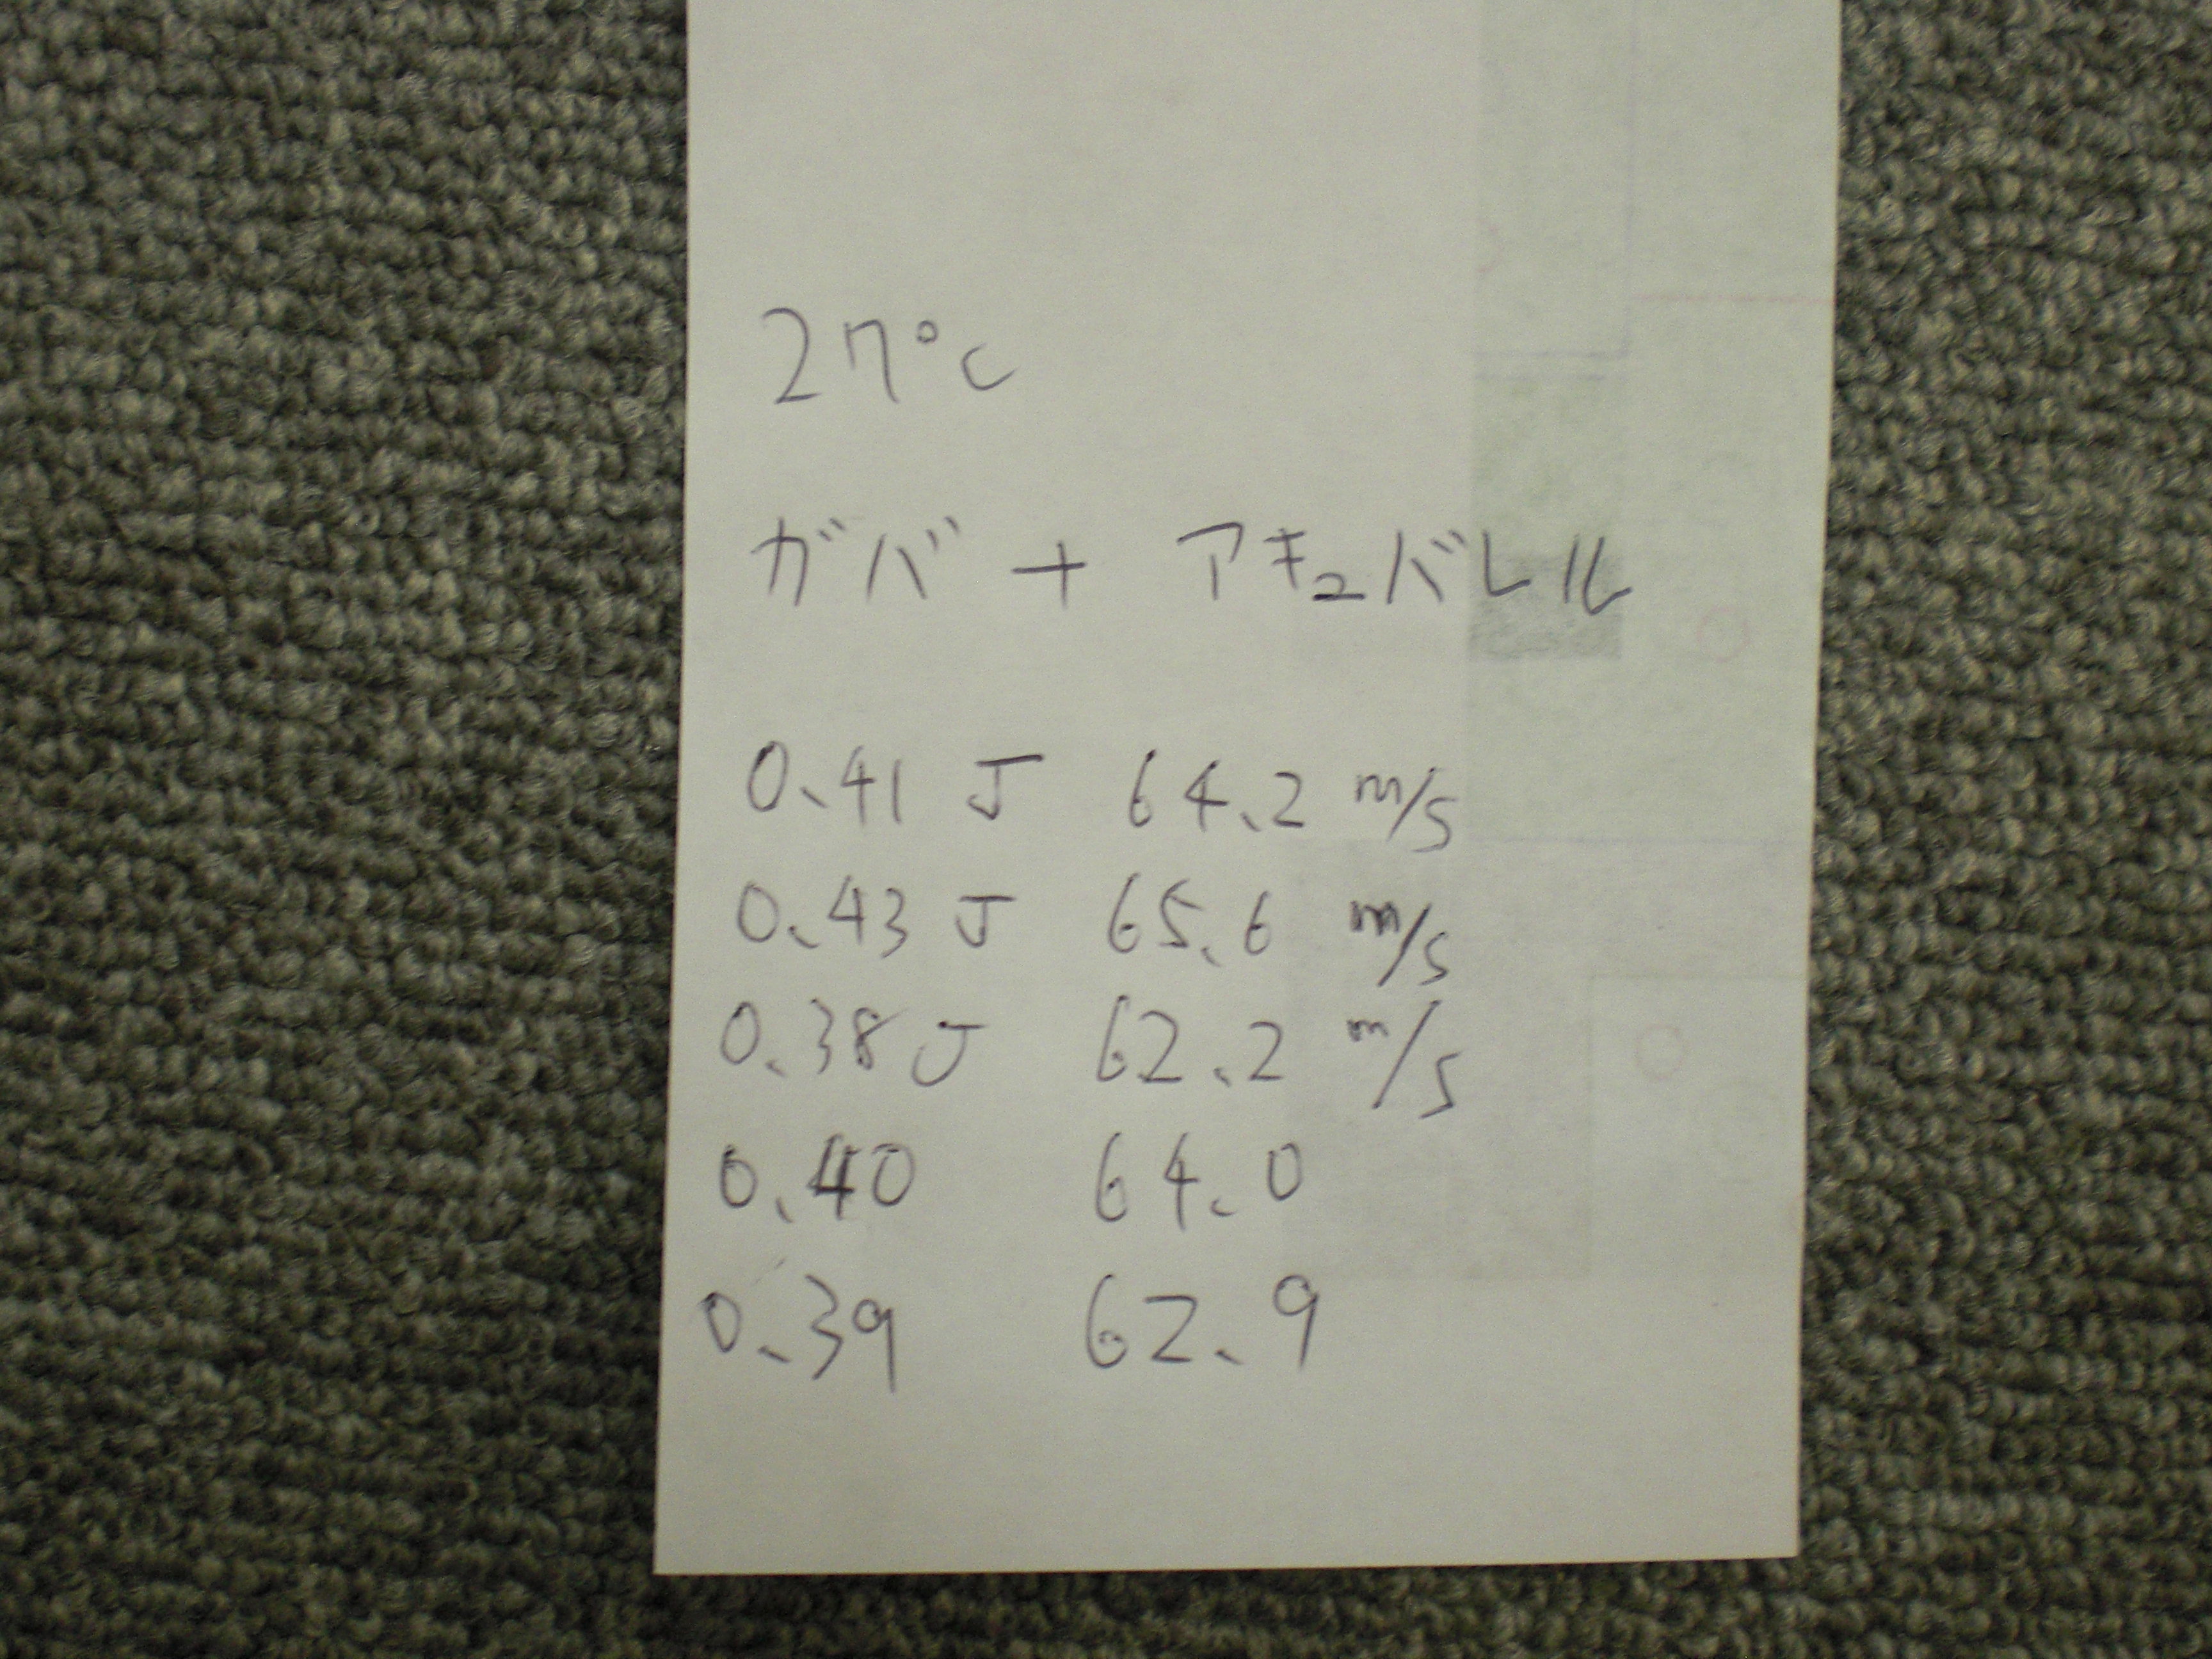 27℃
ガバ + アキュバレル
0.41 J 64.2 m/s
0.43 J 65.6 m/s
0.38 J 62.2 m/s
0.40 64.0
0.39 62.9